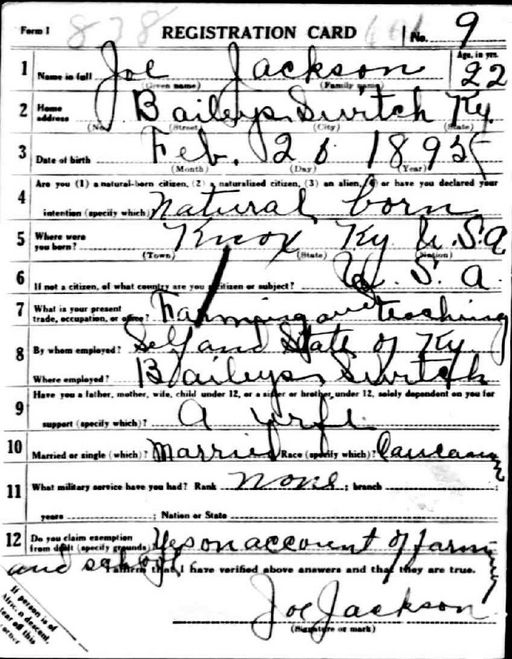 Form 1 REGISTRATION CARD No. 9
1 Name in full Joe Jackson Age, in yrs. 22
(Given name) (Family name)
2 Home address Baileys Switch Ky.
(No.) (Street) (City) (State)
3 Date of birth Feb. 26 1895
(Month) (Day) (Year)
4 Are you (1) a natural-born citizen, (2) a naturalized citizen, (3) an alien, (4) or have you declared your
intention (specify which) Natural born
5 Where were you born? Knox Ky U.S.A
(Town) (State) (Nation)
6 If not a citizen, of what country are you a citizen or subject? U. S. A.
7 What is your present trade, occupation, or office? Farming and teaching
8 By whom employed? Self and State of Ky.
Where employed? Baileys Switch
9 Have you a father, mother, wife, child under 12, or a sister or brother under 12, solely dependent on you for
support (specify which)? A wife
10 Married or single (which)? Married Race (specify which)? Caucasian
11 What military service have you had? Rank none ; branch
years ; Nation or State
12 Do you claim exemption from draft (specify grounds)? Yes on account of farm
and school
I affirm that I have verified above answers and that they are true.
Joe Jackson
(Signature or mark)
If person is of
African descent,
tear off this
corner